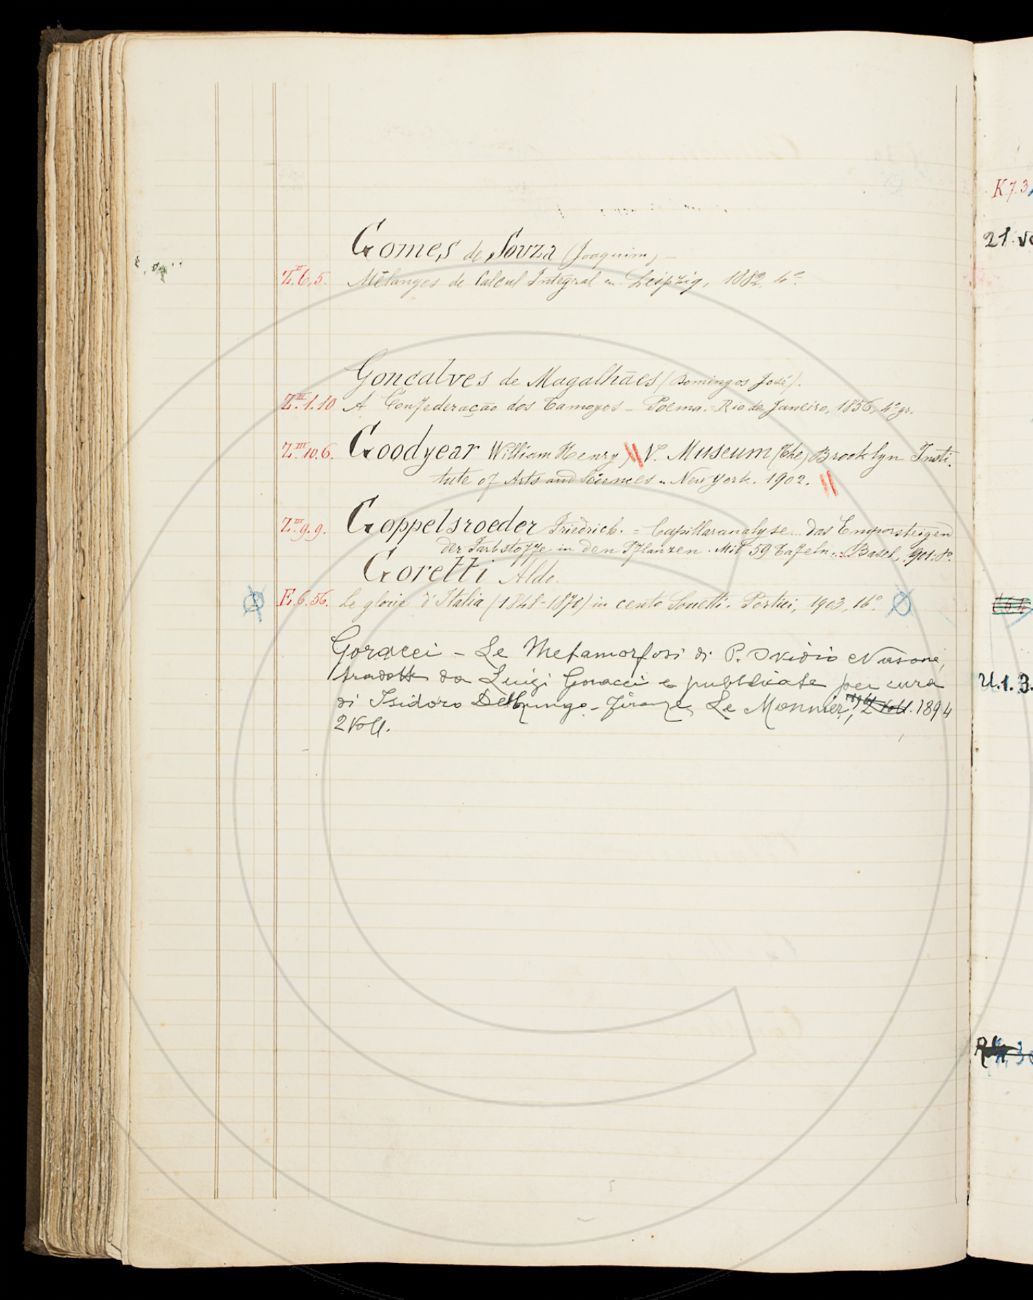 Gomes de Souza (Joaquim)
Z.II 6,5. Mélanges de Calcul Intégral – Leipzig, 1882, 4º
Goncalves de Magalhães (Domingos José).
Z.III.1.10 A Confederação dos Tamoyos – Poema. Rio de Janeiro, 1856, 4º gr.
Z.III 10.6. Goodyear William Henry, V. Museum (The) Brooklyn Insti-
tute of Arts and Sciences – New York. 1902.
Z.III 9.9. Goppelsroeder Friedrich. – Capillaranalyse das Emporsteigen
der Farbstoffe in den Pflanzen. Mit 59 Tafeln. Basel, 901. 8º
Goretti Aldo.
E.6.56. Le glorie d'Italia (1848-1870) in cento Sonetti. 1903, 16º
Goracci – Le Metamorfosi di P. Ovidio Nasone,
tradotte da Luigi Goracci e pubblicate per cura
di Isidoro Del Lungo – Firenze Le Monnier, 2 voll. 1894
2 voll.
K 7.3
21.
U.1.3.